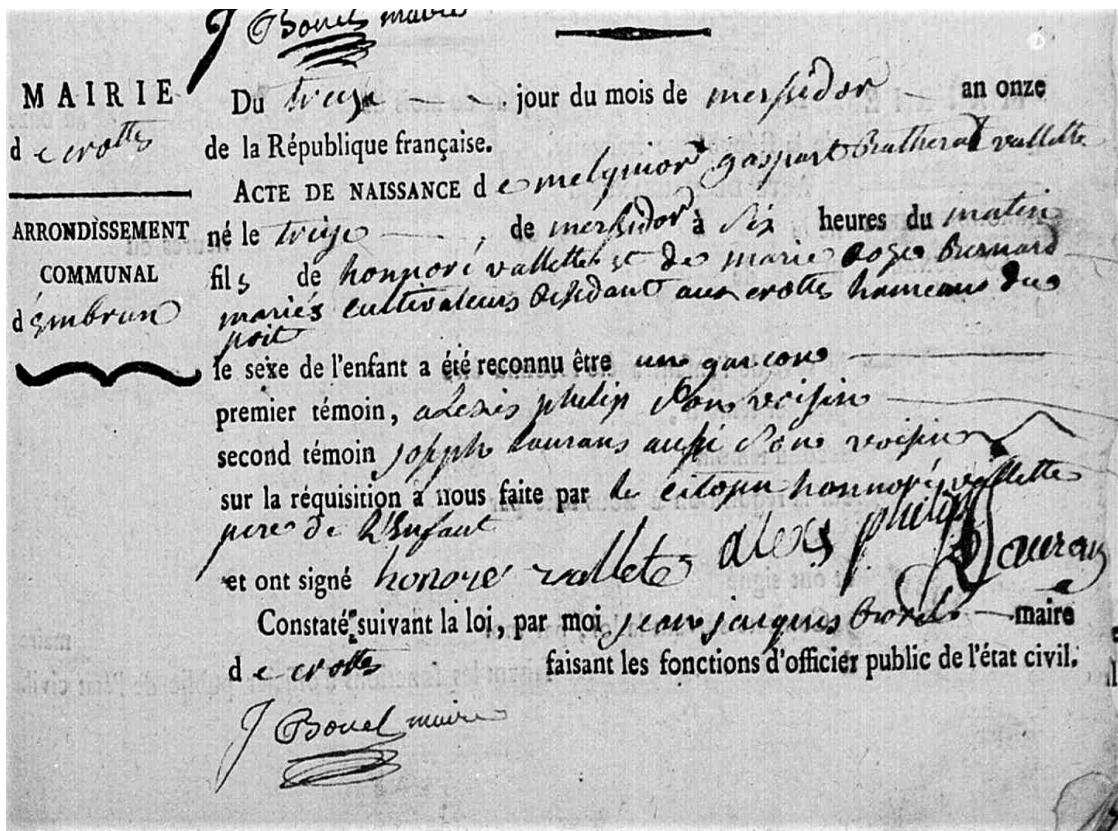 J Bouel maire
MAIRIE
de crottes
ARRONDISSEMENT
COMMUNAL
d'Embrun
Du treize jour du mois de messidor an onze
de la République française.
ACTE DE NAISSANCE de melquior gaspart Balthazar vallette
né le treize de messidor à six heures du matin
fils de honnoré vallette et de marie Bernard
mariés cultivateurs residant aux crottes hameaux du
poit
le sexe de l'enfant a été reconnu être un garcon
premier témoin, alexis philip son voisin
second témoin joseph laurans aussi son voisin
sur la réquisition à nous faite par le citoyen honnoré vallette
pere de l'enfant
et ont signé honoré vallete alexis philip J Laurans
Constaté, suivant la loi, par moi jean jacques maire
de crottes faisant les fonctions d'officier public de l'état civil.
J Bouel maire